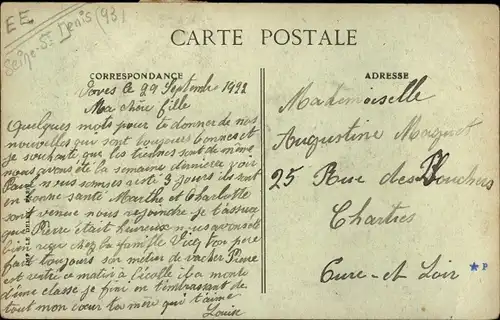 EE
Seine-St Denis (93)
CARTE POSTALE
CORRESPONDANCE
ADRESSE
le 29 Septembre 1922
Ma chère fille
Quelques mots pour te donner de nos
nouvelles qui sont toujours bonnes et
je souhaite que les tiennes sont de même
nous avons été la semaine dernière voir
Paul nous sommes resté 3 jours ils sont
en bonne santé Marthe et Charlotte
sont venue nous rejoindre je t'assure
que Pierre était heureux nous avons été
bien reçu chez la famille ton père
fait toujours son métier de vacher Pierre
est rentré ce matin à l'école il a monté
d'une classe je fini en t'embrassant de
tout mon cœur ta mère qui t'aime
Louise
Mademoiselle
Augustine
25 Rue des Bouchers
Chartres
Eure-et Loir